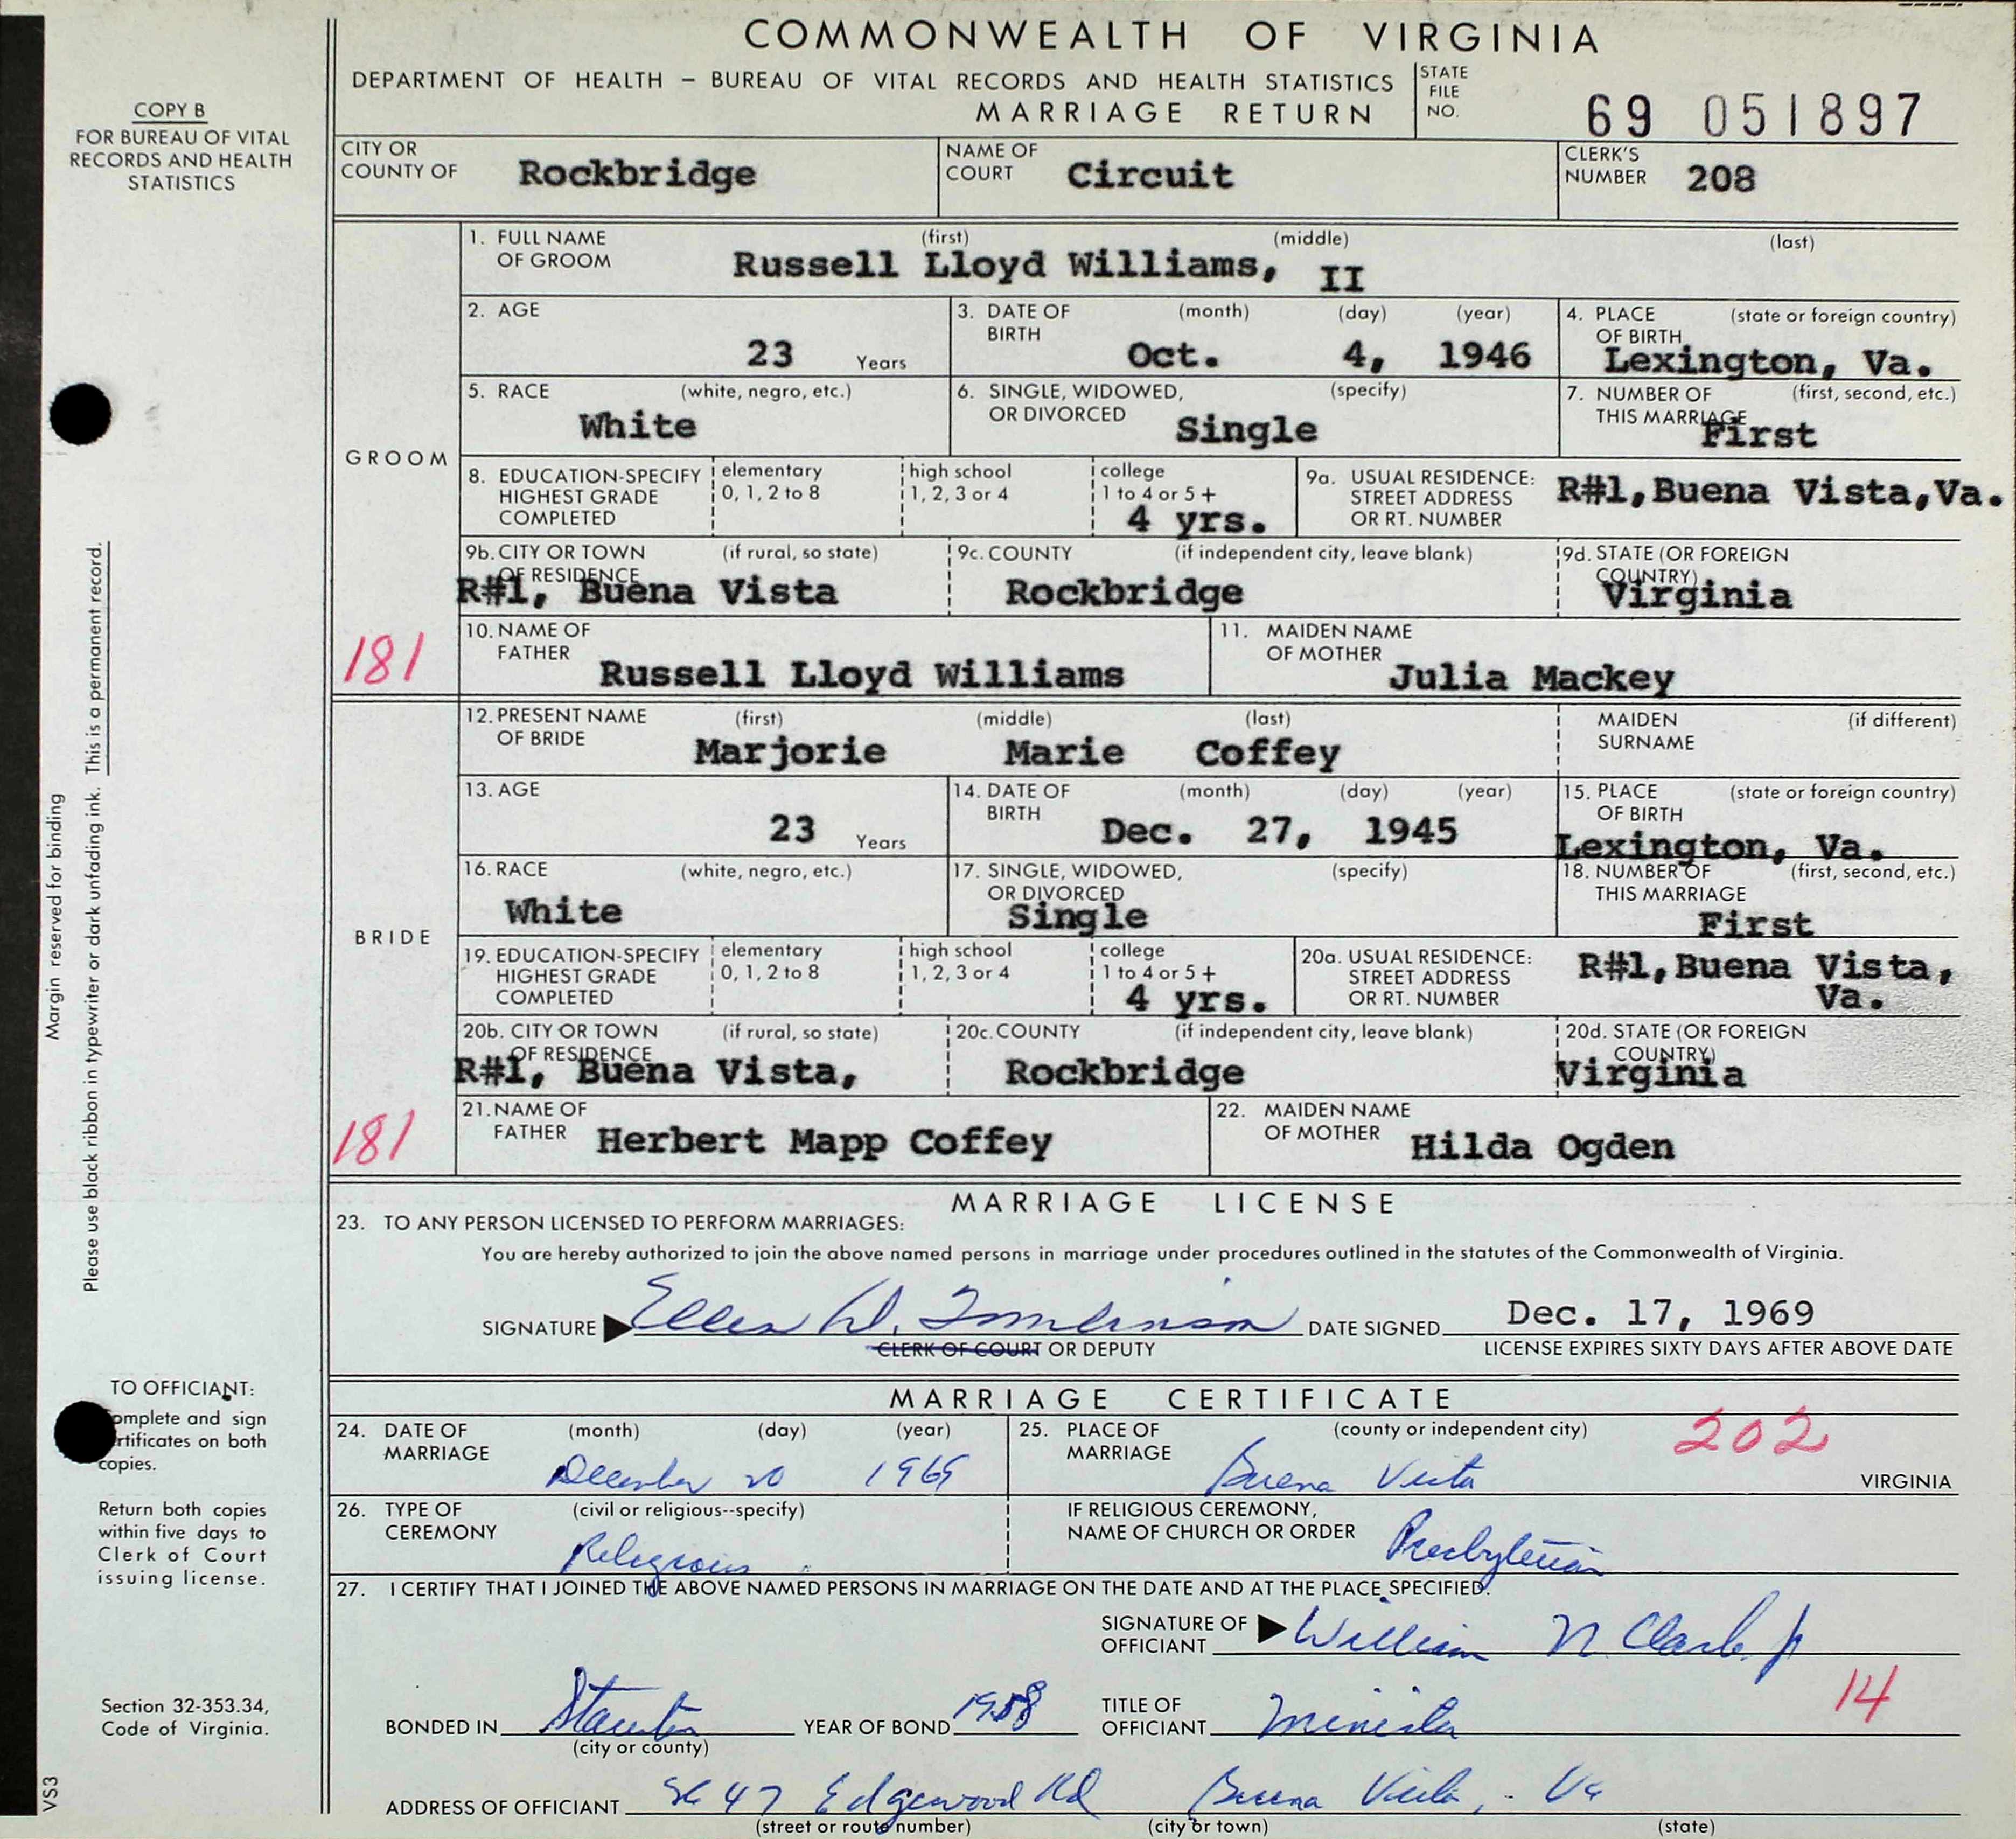 COMMONWEALTH OF VIRGINIA
DEPARTMENT OF HEALTH – BUREAU OF VITAL RECORDS AND HEALTH STATISTICS
MARRIAGE RETURN
STATE FILE NO. 69 051897
COPY B
FOR BUREAU OF VITAL
RECORDS AND HEALTH
STATISTICS
CITY OR COUNTY OF Rockbridge
NAME OF COURT Circuit
CLERK'S NUMBER 208
GROOM
1. FULL NAME OF GROOM (first) (middle) (last)
Russell Lloyd Williams, II
2. AGE 23 Years
3. DATE OF BIRTH (month) (day) (year) Oct. 4, 1946
4. PLACE OF BIRTH (state or foreign country) Lexington, Va.
5. RACE (white, negro, etc.) White
6. SINGLE, WIDOWED, OR DIVORCED (specify) Single
7. NUMBER OF THIS MARRIAGE (first, second, etc.) First
8. EDUCATION-SPECIFY HIGHEST GRADE COMPLETED
elementary 0, 1, 2 to 8
high school 1, 2, 3 or 4
college 1 to 4 or 5+ 4 yrs.
9a. USUAL RESIDENCE: STREET ADDRESS OR RT. NUMBER R#1,Buena Vista,Va.
9b. CITY OR TOWN OF RESIDENCE (if rural, so state) R#1, Buena Vista
9c. COUNTY (if independent city, leave blank) Rockbridge
9d. STATE (OR FOREIGN COUNTRY) Virginia
181
10. NAME OF FATHER Russell Lloyd Williams
11. MAIDEN NAME OF MOTHER Julia Mackey
BRIDE
12. PRESENT NAME OF BRIDE (first) (middle) (last) Marjorie Marie Coffey
MAIDEN SURNAME (if different)
13. AGE 23 Years
14. DATE OF BIRTH (month) (day) (year) Dec. 27, 1945
15. PLACE OF BIRTH (state or foreign country) Lexington, Va.
16. RACE (white, negro, etc.) White
17. SINGLE, WIDOWED, OR DIVORCED (specify) Single
18. NUMBER OF THIS MARRIAGE (first, second, etc.) First
19. EDUCATION-SPECIFY HIGHEST GRADE COMPLETED
elementary 0, 1, 2 to 8
high school 1, 2, 3 or 4
college 1 to 4 or 5+ 4 yrs.
20a. USUAL RESIDENCE: STREET ADDRESS OR RT. NUMBER R#1,Buena Vista, Va.
20b. CITY OR TOWN OF RESIDENCE (if rural, so state) R#1, Buena Vista,
20c. COUNTY (if independent city, leave blank) Rockbridge
20d. STATE (OR FOREIGN COUNTRY) Virginia
181
21. NAME OF FATHER Herbert Mapp Coffey
22. MAIDEN NAME OF MOTHER Hilda Ogden
MARRIAGE LICENSE
23. TO ANY PERSON LICENSED TO PERFORM MARRIAGES:
You are hereby authorized to join the above named persons in marriage under procedures outlined in the statutes of the Commonwealth of Virginia.
SIGNATURE Ellen W. Tomlinson DATE SIGNED Dec. 17, 1969
CLERK OF COURT OR DEPUTY
LICENSE EXPIRES SIXTY DAYS AFTER ABOVE DATE
MARRIAGE CERTIFICATE
24. DATE OF MARRIAGE (month) (day) (year) December 20 1969
25. PLACE OF MARRIAGE (county or independent city) Buena Vista VIRGINIA
202
26. TYPE OF CEREMONY (civil or religious--specify) Religious
IF RELIGIOUS CEREMONY, NAME OF CHURCH OR ORDER Presbyterian
27. I CERTIFY THAT I JOINED THE ABOVE NAMED PERSONS IN MARRIAGE ON THE DATE AND AT THE PLACE SPECIFIED.
SIGNATURE OF OFFICIANT William N. Clark Jr
14
BONDED IN Staunton (city or county)
YEAR OF BOND 1958
TITLE OF OFFICIANT Minister
ADDRESS OF OFFICIANT 47 Edgewood Rd Buena Vista, Va
(street or route number) (city or town) (state)
Margin reserved for binding
Please use black ribbon in typewriter or dark unfading ink. This is a permanent record.
TO OFFICIANT:
omplete and sign
rtificates on both
copies.
Return both copies
within five days to
Clerk of Court
issuing license.
Section 32-353.34,
Code of Virginia.
VS3